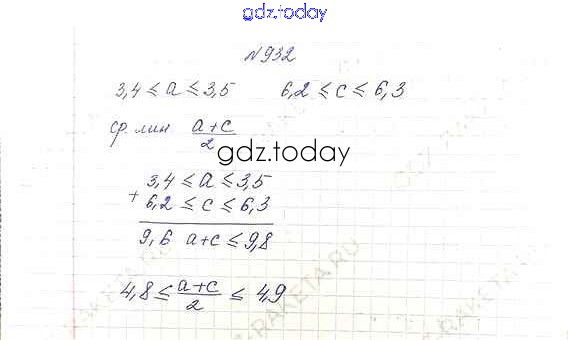 gdz.today
№932
3,4 ≤ a ≤ 3,5   6,2 ≤ c ≤ 6,3
ср. лин (a+c)/2
gdz.today
3,4 ≤ a ≤ 3,5
+ 6,2 ≤ c ≤ 6,3
9,6 a+c ≤ 9,8
4,8 ≤ (a+c)/2 ≤ 4,9